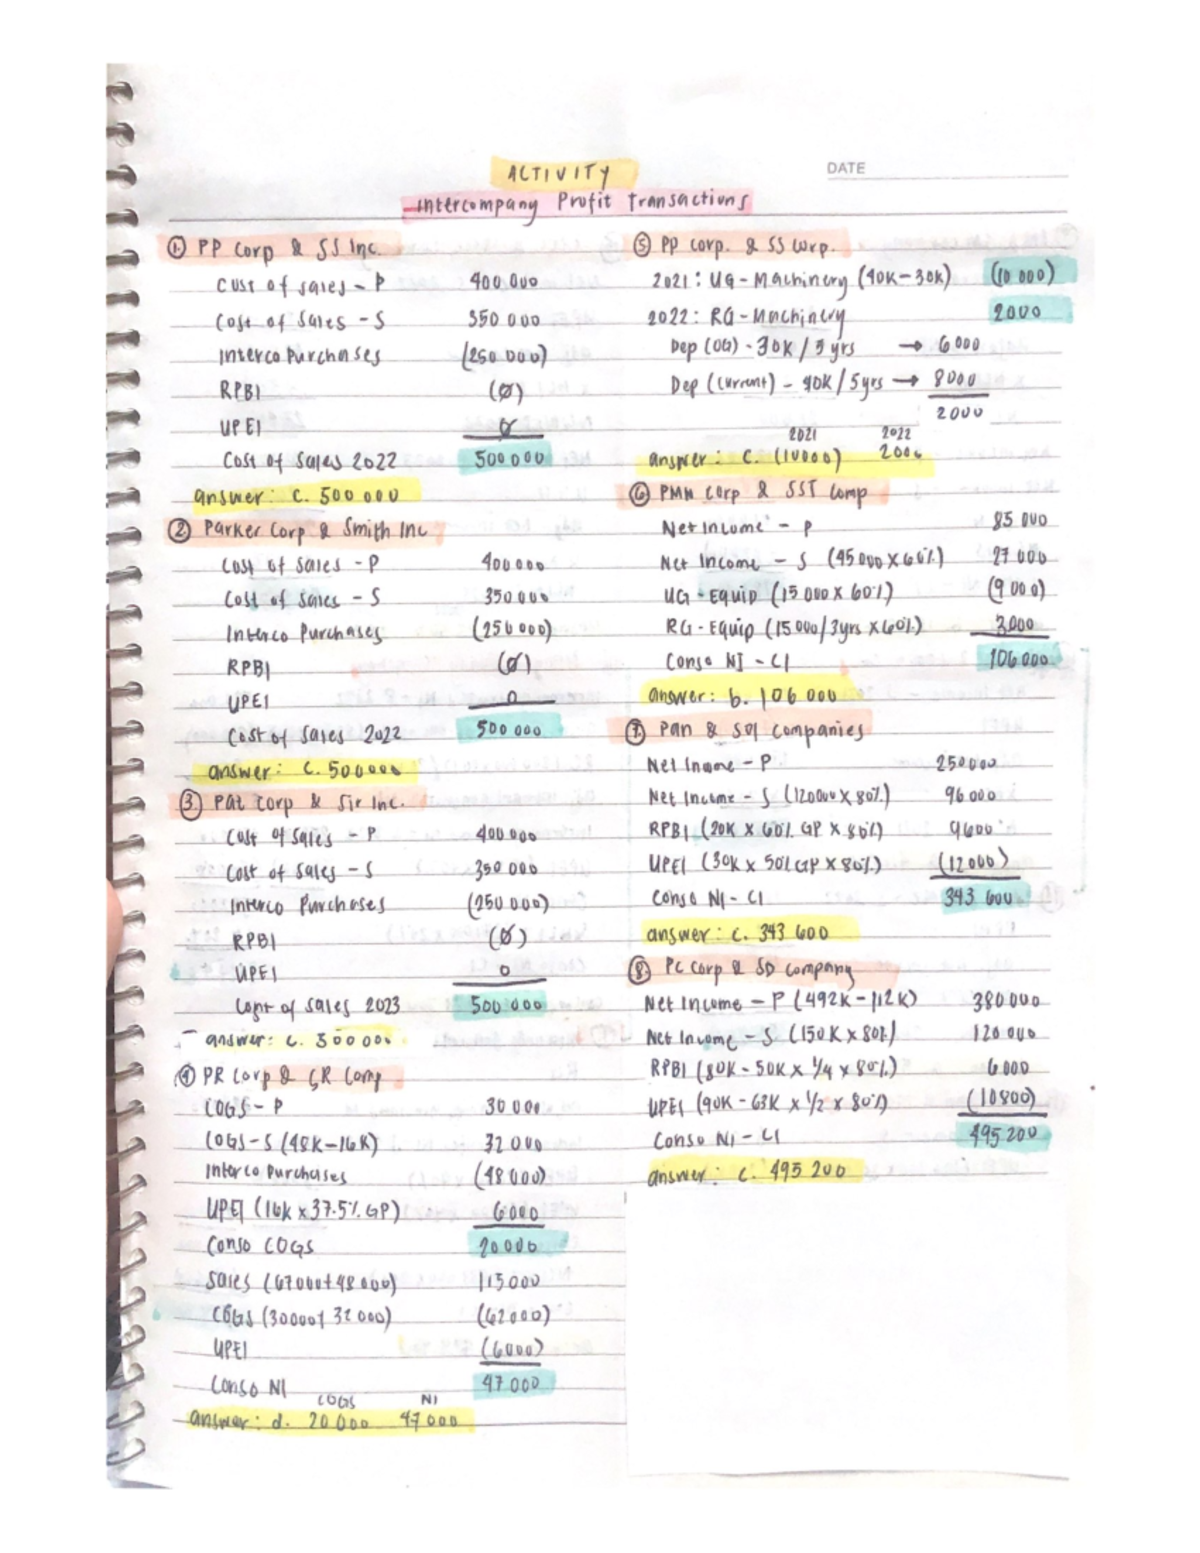 DATE
ACTIVITY
Intercompany Profit Transactions
① PP Corp & SS Inc.
Cost of sales - P 400 000
Cost of Sales - S 350 000
Interco Purchases (250 000)
RPBI (0)
UPEI 0
Cost of Sales 2022 500 000
answer: c. 500 000
② Parker Corp & Smith Inc
Cost of Sales - P 400 000
Cost of Sales - S 350 000
Interco Purchases (250 000)
RPBI (0)
UPEI 0
Cost of Sales 2022 500 000
answer: c. 500 000
③ Pat Corp & Sir Inc.
Cost of Sales - P 400 000
Cost of Sales - S 350 000
Interco Purchases (250 000)
RPBI (0)
UPEI 0
of Sales 2023 500 000
answer: c. 500 000
④ PR Corp & SR Comp
COGS - P 30 000
COGS - S (48K-16K) 32 000
Interco Purchases (48 000)
UPEI (16K x 37.5% GP) 6000
Conso COGS 20 000
Sales (67000+48 000) 115 000
COGS (30000+ 32 000) (62 000)
UPEI (6000)
Conso NI 47 000
COGS NI
answer: d. 20 000 47 000
⑤ PP Corp. & SS Corp.
2021: UG - Machinery (40K-30K) (10 000)
2022: RG - Machinery 2000
Dep (OG) - 30K / 5 yrs → 6 000
Dep (current) - 40K / 5 yrs → 8000
2000
2021 2022
answer: c. (10000) 2000
⑥ PMN Corp & SST Comp
Net Income - P 85 000
Net Income - S (45 000 X 60%) 27 000
UG - Equip (15 000 X 60%) (9 000)
RG - Equip (15 000/3yrs X 60%) 3000
Conso NI - CI 106 000
answer: b. 106 000
⑦ Pan & Sol Companies
Net Income - P 250 000
Net Income - S (120000 X 80%) 96 000
RPBI (20K X 60% GP X 80%) 9600
UPEI (30K X 50% GP X 80%) (12 000)
Conso NI - CI 343 600
answer: c. 343 600
⑧ PC Corp & SD Company
Net Income - P (492K - 112K) 380 000
Net Income - S (150K X 80%) 120 000
RPBI (80K - 50K X 1/4 X 80%) 6 000
UPEI (90K - 63K X 1/2 X 80%) (10 800)
Conso NI - CI 495 200
answer: c. 495 200